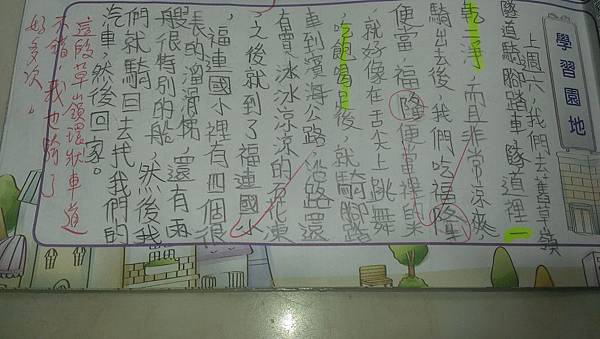 學習園地
上週六，我們去舊草嶺
隧道騎腳踏車，隧道裡一
乾二淨，而且非常涼爽，
騎出去後，我們吃福隆
便當，福隆便當裡
，就好像在舌尖上跳舞
，吃飽喝足後，就騎腳踏
車到濱海公路，沿路還
有賣冰冰涼涼的石花凍
，之後就到了福連國小
，福連國小裡有四個很
長的溜滑梯，還有兩
艘很特別的船，然後我
們就騎回去找我們的
汽車，然後回家。
這段草嶺環狀車道
不錯，我也騎了
好多次。